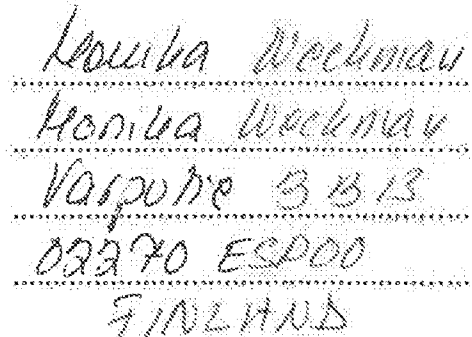 Monika Weckman
Monika Weckman
Varputie 3 B 13
02270 ESPOO
FINLAND